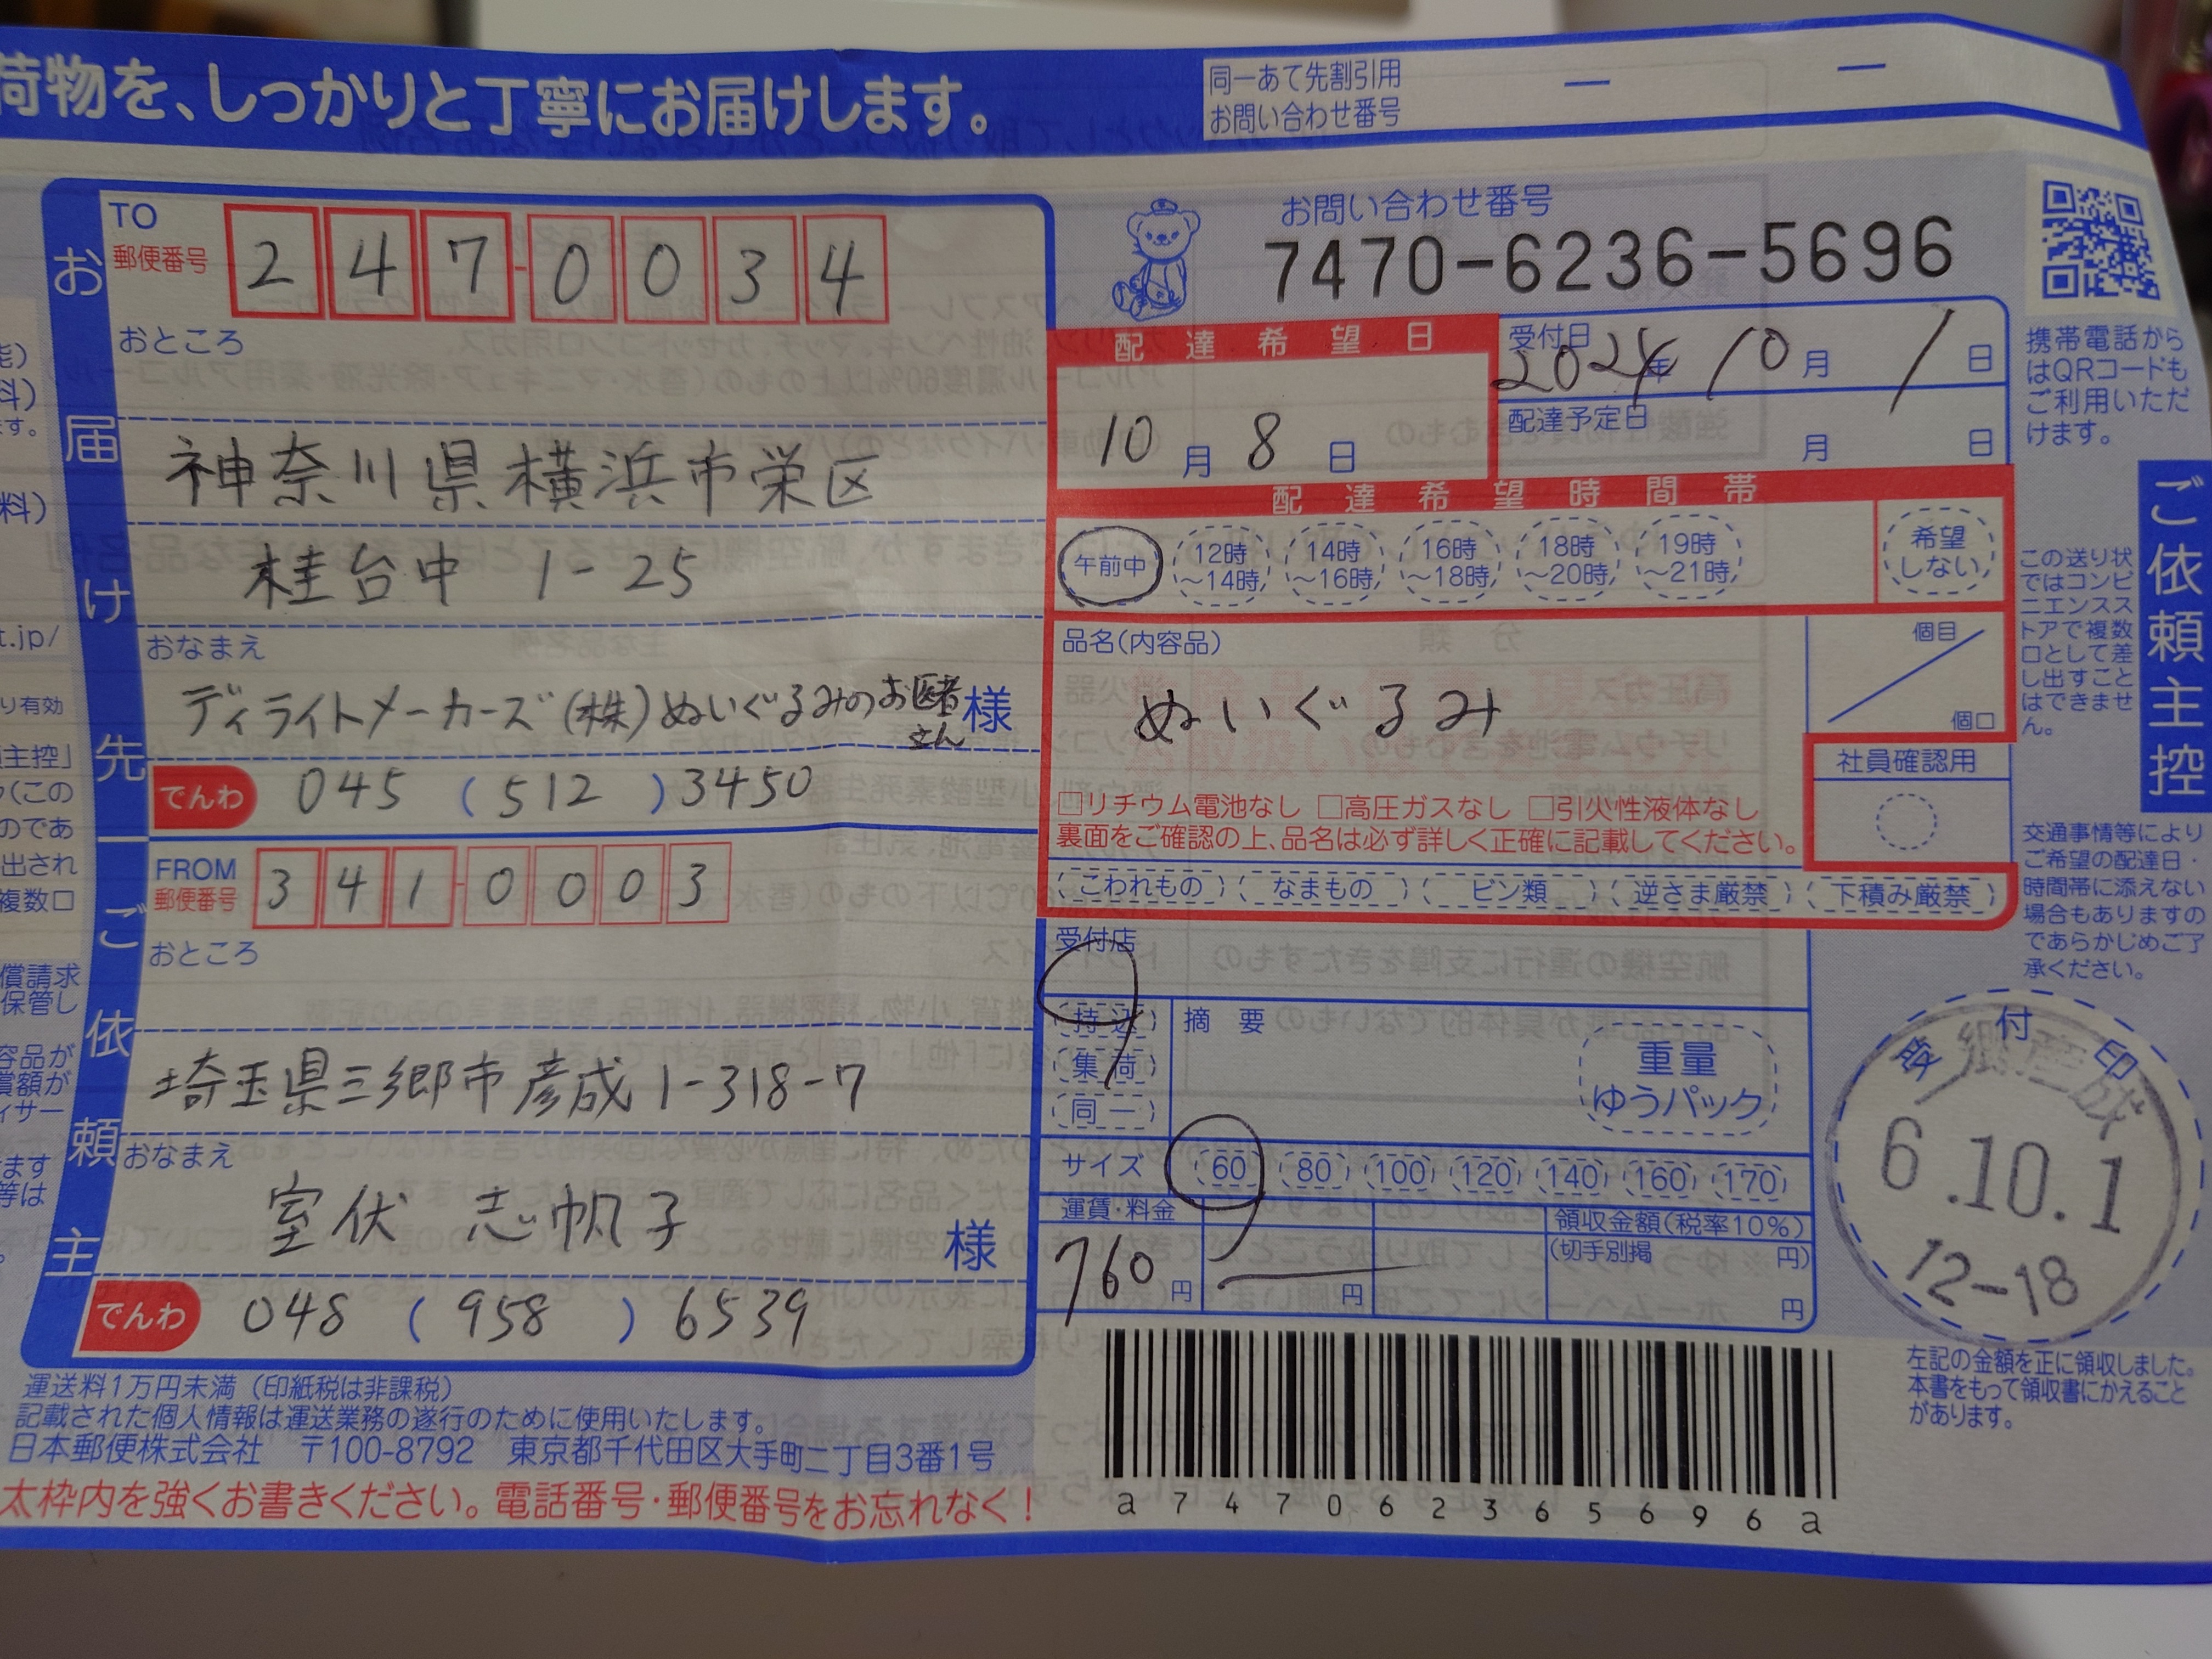 荷物を、しっかりと丁寧にお届けします。
同一あて先割引用
お問い合わせ番号
— —
お届け先
TO
郵便番号
247-0034
おところ
神奈川県横浜市栄区
桂台中 1-25
おなまえ
ディライトメーカーズ(株)ぬいぐるみのお医者さん 様
でんわ 045 (512)3450
ご依頼主
FROM
郵便番号
341-0003
おところ
埼玉県三郷市彦成1-318-7
おなまえ
室伏 志帆子 様
でんわ 048 (958) 6539
運送料1万円未満(印紙税は非課税)
記載された個人情報は運送業務の遂行のために使用いたします。
日本郵便株式会社 〒100-8792 東京都千代田区大手町二丁目3番1号
太枠内を強くお書きください。電話番号・郵便番号をお忘れなく!
お問い合わせ番号
7470-6236-5696
配達希望日
10月8日
受付日
2024年10月1日
配達予定日
月 日
配達希望時間帯
午前中
12時~14時
14時~16時
16時~18時
18時~20時
19時~21時
希望しない
品名(内容品)
ぬいぐるみ
個目
個口
社員確認用
□リチウム電池なし □高圧ガスなし □引火性液体なし
裏面をご確認の上、品名は必ず詳しく正確に記載してください。
こわれもの なまもの ビン類 逆さま厳禁 下積み厳禁
受付店
持込
集荷
同一
摘要
重量
ゆうパック
サイズ 60 80 100 120 140 160 170
運賃・料金
760円
円
領収金額(税率10%)
(切手別掲 円)
円
a747062365696a
携帯電話から
はQRコードも
ご利用いただ
けます。
ご依頼主控
この送り状
ではコンビ
ニエンスス
トアで複数
口として差
し出すこと
はできませ
ん。
交通事情等により
ご希望の配達日・
時間帯に添えない
場合もありますの
であらかじめご了
承ください。
受付印
6.10.1
12-18
左記の金額を正に領収しました。
本書をもって領収書にかえること
があります。